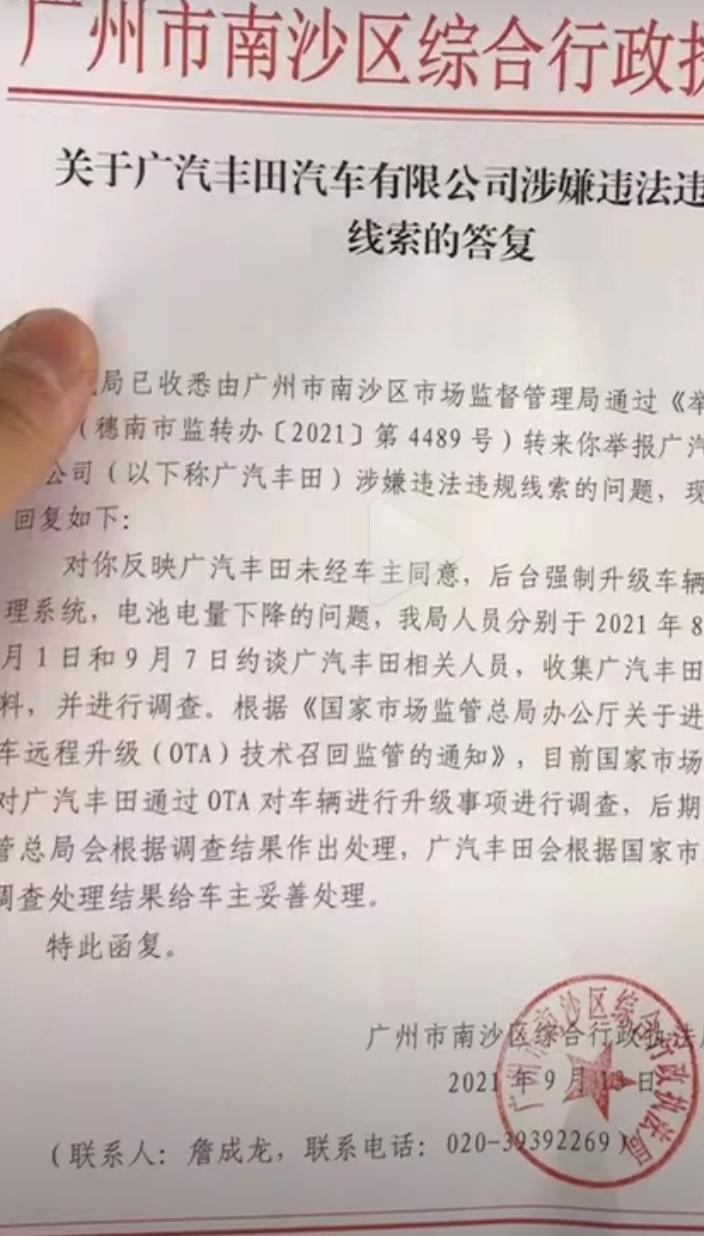 广州市南沙区综合行政执
关于广汽丰田汽车有限公司涉嫌违法违
线索的答复
局已收悉由广州市南沙区市场监督管理局通过《举
（穗南市监转办〔2021〕第 4489 号）转来你举报广汽
公司（以下称广汽丰田）涉嫌违法违规线索的问题，现
回复如下：
对你反映广汽丰田未经车主同意，后台强制升级车辆
理系统，电池电量下降的问题，我局人员分别于 2021 年 8
月 1 日和 9 月 7 日约谈广汽丰田相关人员，收集广汽丰田
料，并进行调查。根据《国家市场监管总局办公厅关于进
车远程升级（OTA）技术召回监管的通知》，目前国家市场
对广汽丰田通过 OTA 对车辆进行升级事项进行调查，后期
管总局会根据调查结果作出处理，广汽丰田会根据国家市
调查处理结果给车主妥善处理。
特此函复。
广州市南沙区综合行政执法局
2021 年 9 月 13 日
（联系人：詹成龙，联系电话：020-39392269）
广州市南沙区综合行政执法局